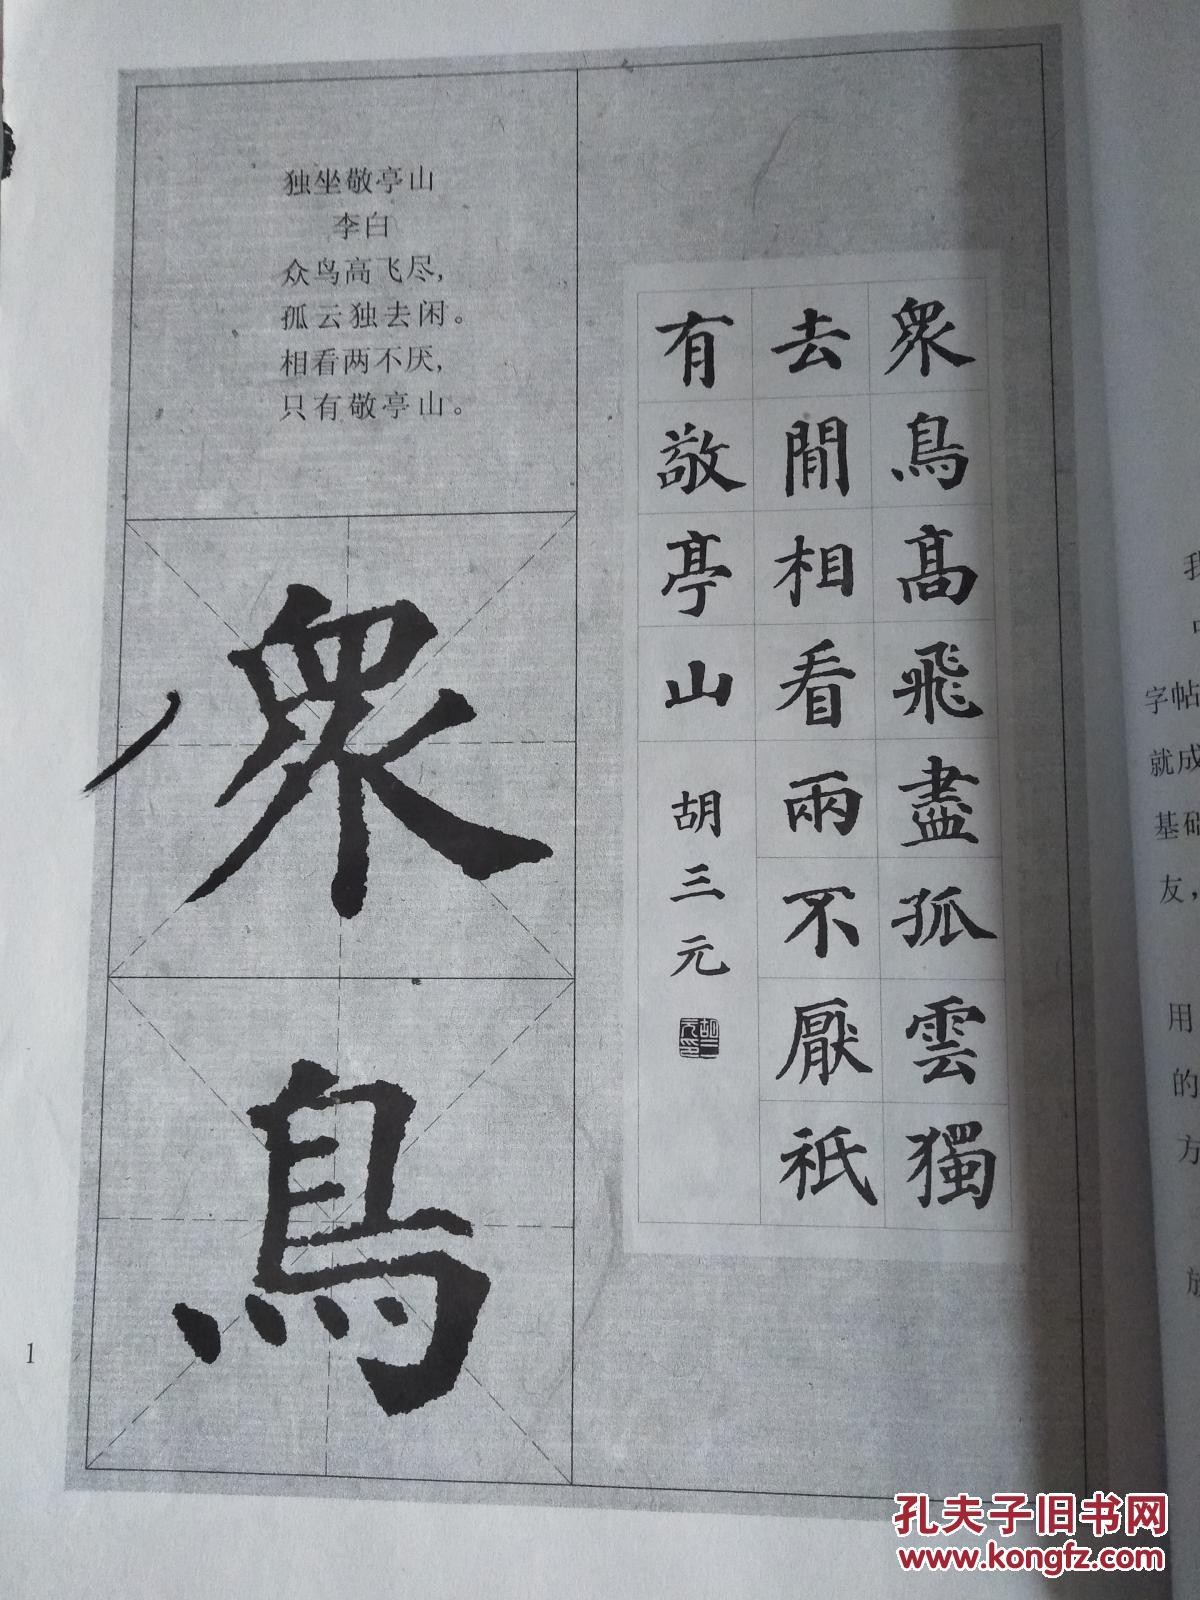 独坐敬亭山
李白
众鸟高飞尽，
孤云独去闲。
相看两不厌，
只有敬亭山。
眾鳥高飛盡孤雲獨
去閒相看兩不厭祇
有敬亭山
胡三元
眾
鳥
1
字帖
就成
基础
友，
用
的
方
孔夫子旧书网
www.kongfz.com